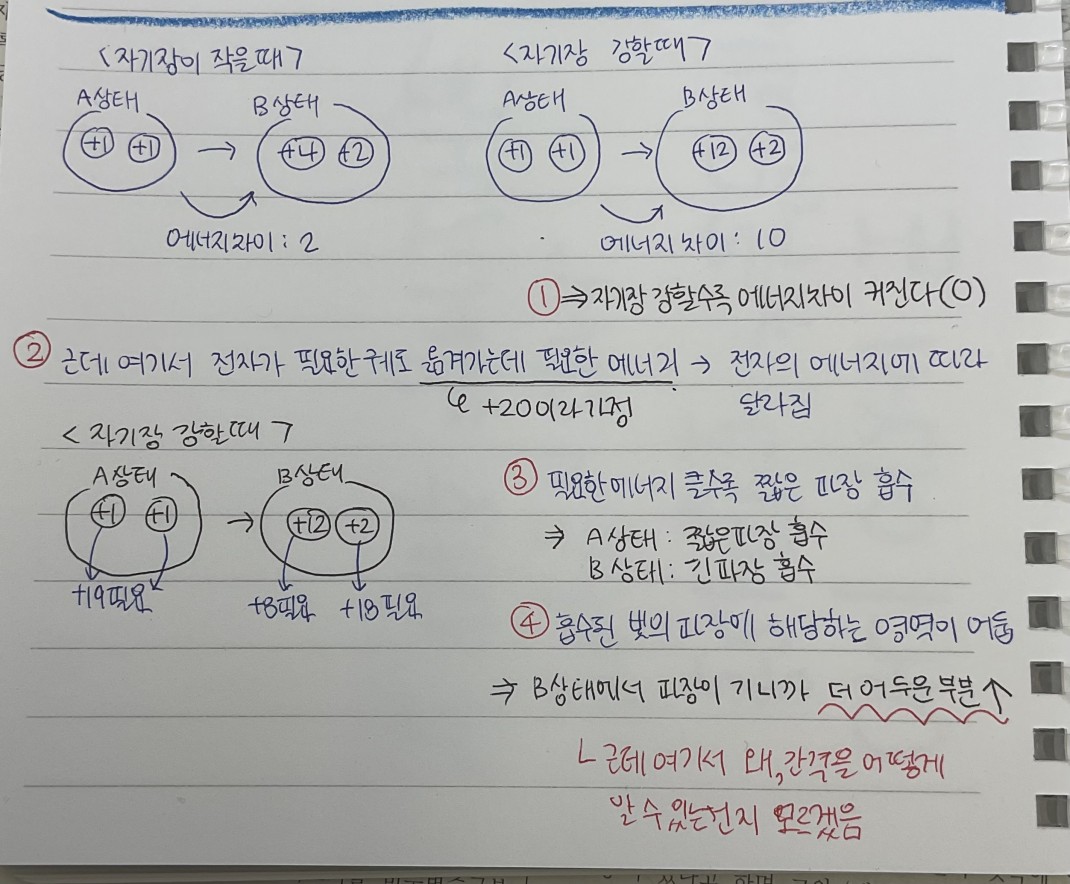 <자기장이 작을때>
<자기장 강할때>
A상태
B상태
A상태
B상태
+1 +1 → +4 +2
+1 +1 → +12 +2
에너지차이 : 2
에너지차이 : 10
① ⇒ 자기장 강할수록 에너지차이 커진다(O)
② 근데 여기서 전자가 필요한궤도 옮겨가는데 필요한 에너지 → 전자의 에너지에 따라
달라짐
+20이라가정
<자기장 강할때>
A상태
B상태
+1 +1 → +12 +2
+19필요
+8필요 +18필요
③ 필요한에너지 클수록 짧은 파장 흡수
⇒ A상태 : 짧은파장 흡수
B상태 : 긴파장 흡수
④ 흡수된 빛의 파장에 해당하는 영역이 어둡
⇒ B상태에서 파장이 기니까 더 어두운부분↑
ㄴ 근데 여기서 왜, 간격을 어떻게
알 수 있는건지 모르겠음